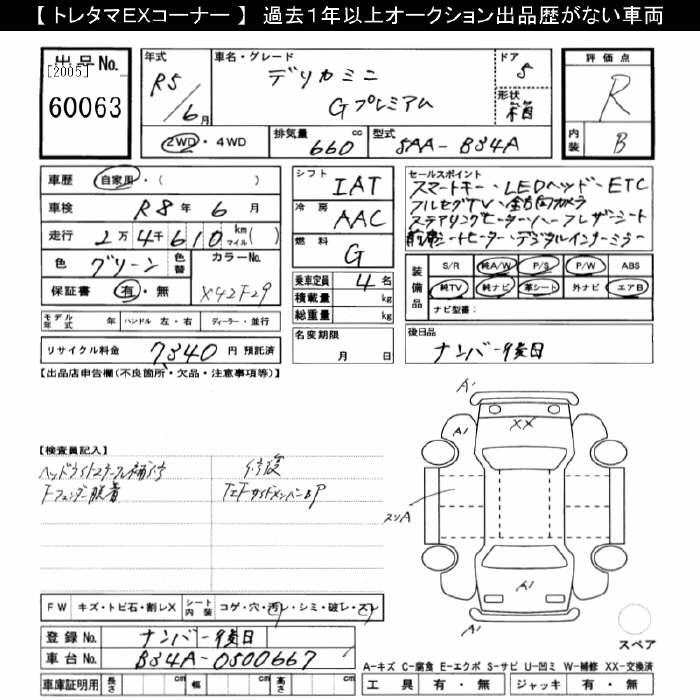 【 トレタマEXコーナー 】 過去１年以上オークション出品歴がない車両
出品No.
[2005]
60063
年式
R5/6月
車名・グレード
デリカミニ
Gプレミアム
ドア
5
形状
箱
評価点
R
内装
B
2WD・4WD
排気量 660 cc
型式 5AA-B34A
車歴 自家用・( )
車検 R8年 6月
走行 2万 4千 610 km マイル( )
色 グリーン 色替
カラーNo.
X42F29
保証書 有・無
シフト IAT
冷房 AAC
燃料 G
乗車定員 4 名
積載量 kg
総重量 kg
セールスポイント
スマートキー・LEDヘッド・ETC
フルセグTV・全方向カメラ
ステアリングヒーター・ハーフレザーシート
前席シートヒーター・デジタルインナーミラー
装備品
S/R 純A/W P/S P/W ABS
純TV 純ナビ 革シート 外ナビ エアB
ナビ型番:
モデル年式 年 ハンドル 左・右 ディーラー・並行
リサイクル料金 7340 円 預託済
名変期限
月 日
後日品
ナンバー後日
【出品店申告欄(不良箇所・欠品・注意事項等)】
【検査員記入】
ヘッドライトステー 補修
Fフェンダー脱着
修復
A1
A1
XX
スリA
A1
A1
スペア
FW キズ・トビ石・割レX シート内装 コゲ・穴・汚レ・シミ・破レ・スレ
登録No. ナンバー後日
車台No. B34A-0500667
車庫証明用 長さ cm 幅 cm 高さ cm
A-キズ C-腐食 E-エクボ S-サビ U-凹ミ W-補修 XX-交換済
工具 有・無 ジャッキ 有・無